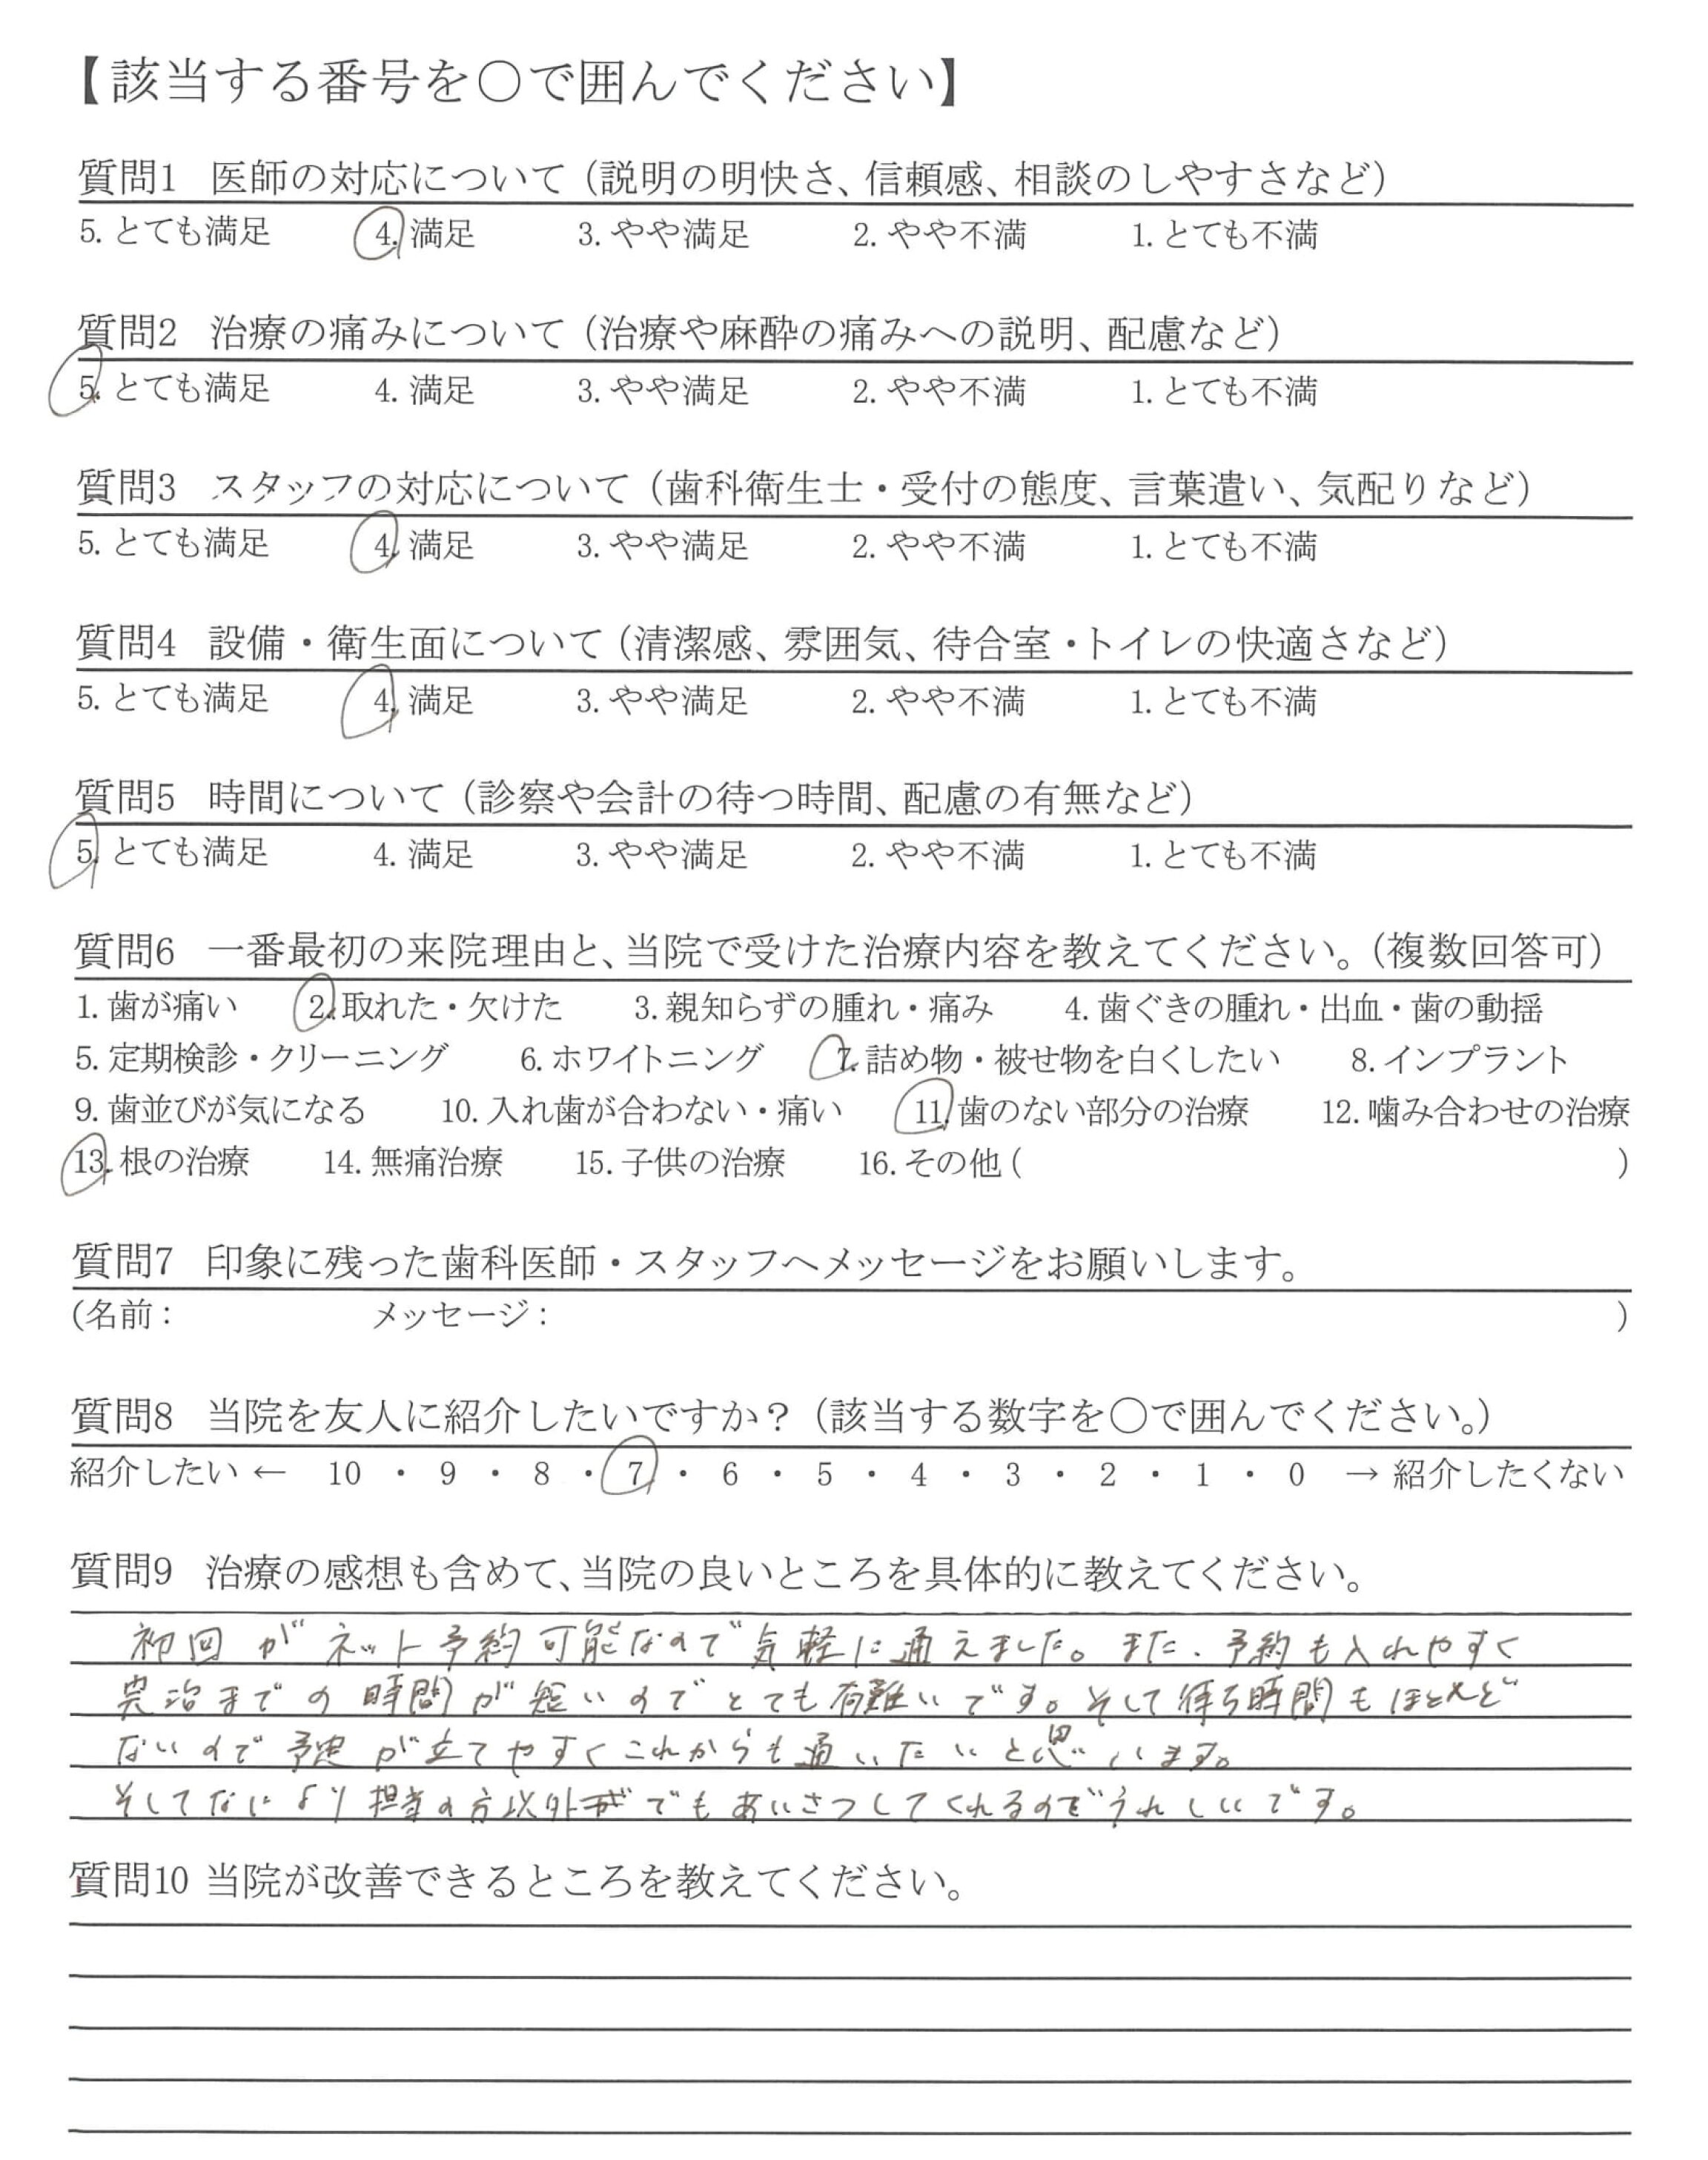 【該当する番号を〇で囲んでください】
質問1 医師の対応について（説明の明快さ、信頼感、相談のしやすさなど）
5. とても満足 4. 満足 3. やや満足 2. やや不満 1. とても不満
質問2 治療の痛みについて（治療や麻酔の痛みへの説明、配慮など）
5. とても満足 4. 満足 3. やや満足 2. やや不満 1. とても不満
質問3 スタッフの対応について（歯科衛生士・受付の態度、言葉遣い、気配りなど）
5. とても満足 4. 満足 3. やや満足 2. やや不満 1. とても不満
質問4 設備・衛生面について（清潔感、雰囲気、待合室・トイレの快適さなど）
5. とても満足 4. 満足 3. やや満足 2. やや不満 1. とても不満
質問5 時間について（診察や会計の待つ時間、配慮の有無など）
5. とても満足 4. 満足 3. やや満足 2. やや不満 1. とても不満
質問6 一番最初の来院理由と、当院で受けた治療内容を教えてください。（複数回答可）
1. 歯が痛い 2. 取れた・欠けた 3. 親知らずの腫れ・痛み 4. 歯ぐきの腫れ・出血・歯の動揺
5. 定期検診・クリーニング 6. ホワイトニング 7. 詰め物・被せ物を白くしたい 8. インプラント
9. 歯並びが気になる 10. 入れ歯が合わない・痛い 11. 歯のない部分の治療 12. 噛み合わせの治療
13. 根の治療 14. 無痛治療 15. 子供の治療 16. その他（ ）
質問7 印象に残った歯科医師・スタッフへメッセージをお願いします。
（名前： メッセージ： ）
質問8 当院を友人に紹介したいですか？（該当する数字を〇で囲んでください。）
紹介したい ← 10 ・ 9 ・ 8 ・ 7 ・ 6 ・ 5 ・ 4 ・ 3 ・ 2 ・ 1 ・ 0 → 紹介したくない
質問9 治療の感想も含めて、当院の良いところを具体的に教えてください。
初回がネット予約可能なので気軽に通えました。また、予約も入れやすく
完治までの時間が短いのでとても有難いです。そして待ち時間もほとんど
ないので予定が立てやすくこれからも通いたいと思います。
そしてなにより担当の方以外でもあいさつしてくれるのでうれしいです。
質問10 当院が改善できるところを教えてください。